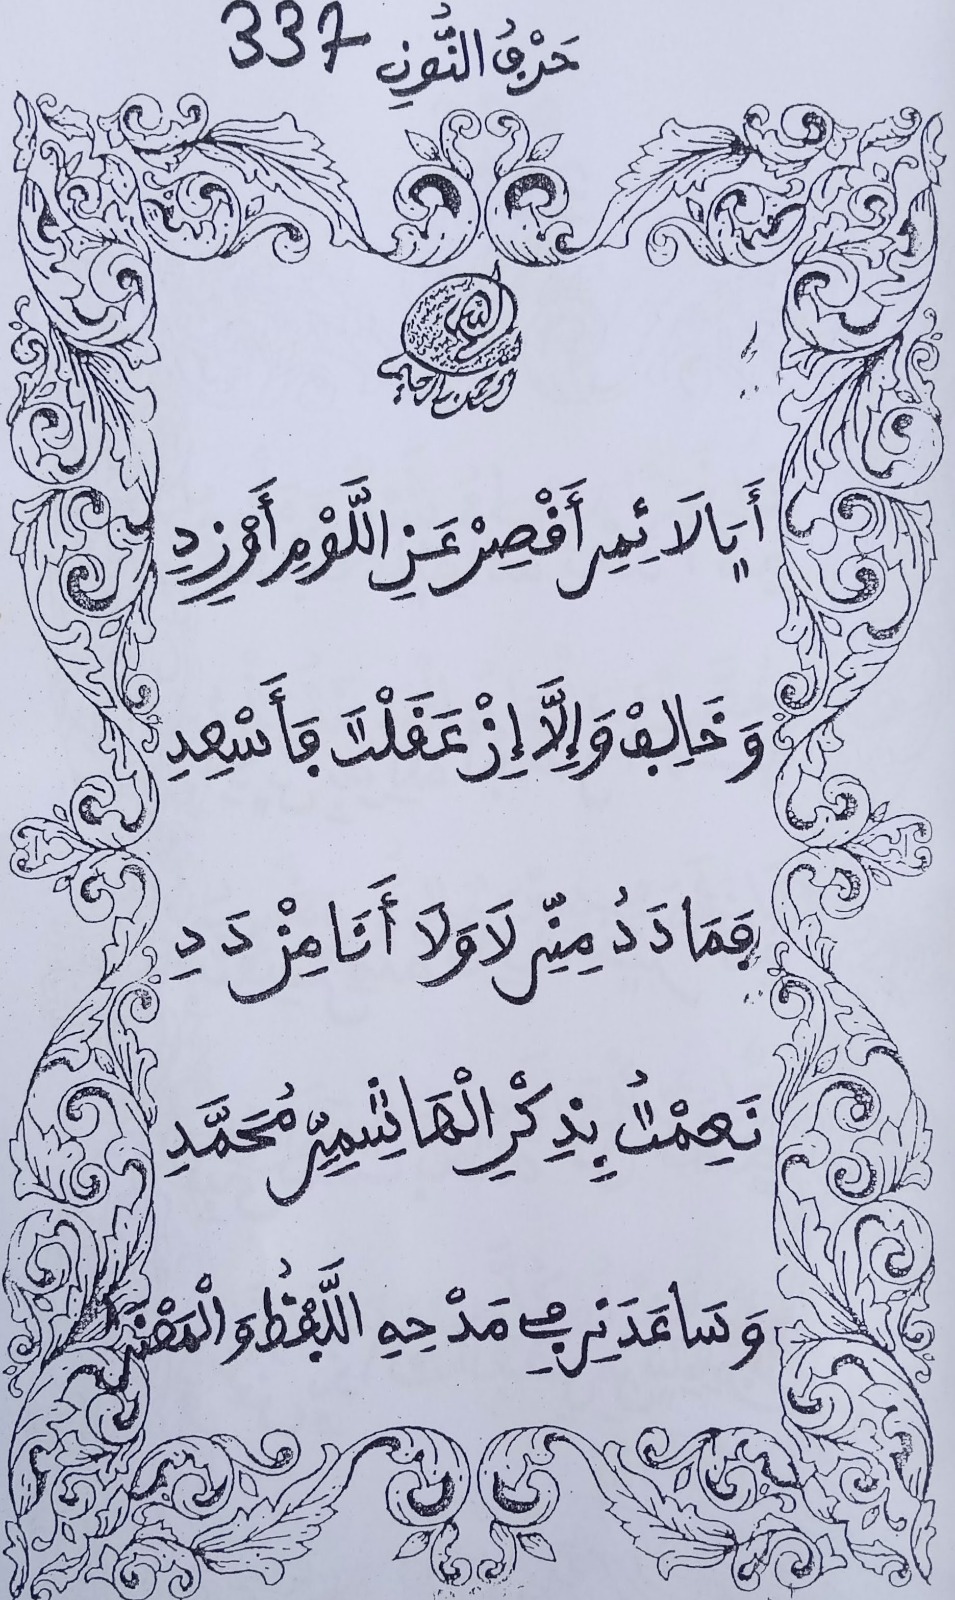 حَرْفُ النُّونِ 337
الله الرحمن الرحيم
أَيَا لَائِمِي أَقْصِرْ عَنِ اللَّوْمِ أَوْ زِدِ
وَخَالِفْ وَإِلَّا إِنْ عَقَلْتَ فَأَسْعِدِ
فَمَا دَدُ مِنِّي لَا وَلَا أَنَا مِنْ دَدِ
نَعِمْتُ بِذِكْرِ الْهَاشِمِيِّ مُحَمَّدِ
وَسَاعَدَنِي فِي مَدْحِهِ اللَّفْظُ وَالْمَعْنَى